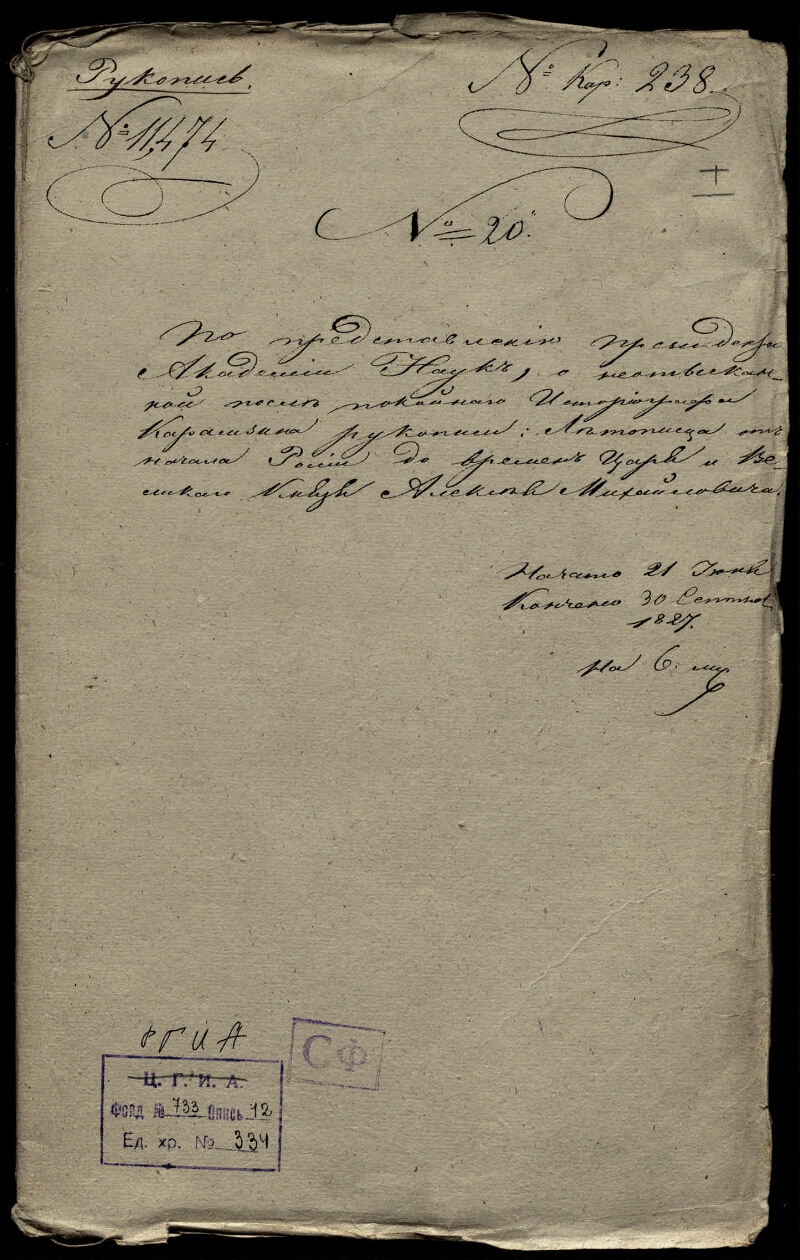 Рукопись.
№ 11,474
№ Кар: 238.
№ 20.
По представленію Президента
Академіи Наукъ, о неотыскан-
ной послѣ покойнаго Исторіографа
Карамзина рукописи: Лѣтописца отъ
начала Росіи до временъ Царя и Ве-
ликаго Князя Алексѣя Михайловича.
Начато 21 Іюня
Кончено 30 Сентяб
1827.
На 6:
РГИА
СФ
Ц. Г. И. А.
Фонд № 733 Опись 12
Ед. хр. № 334